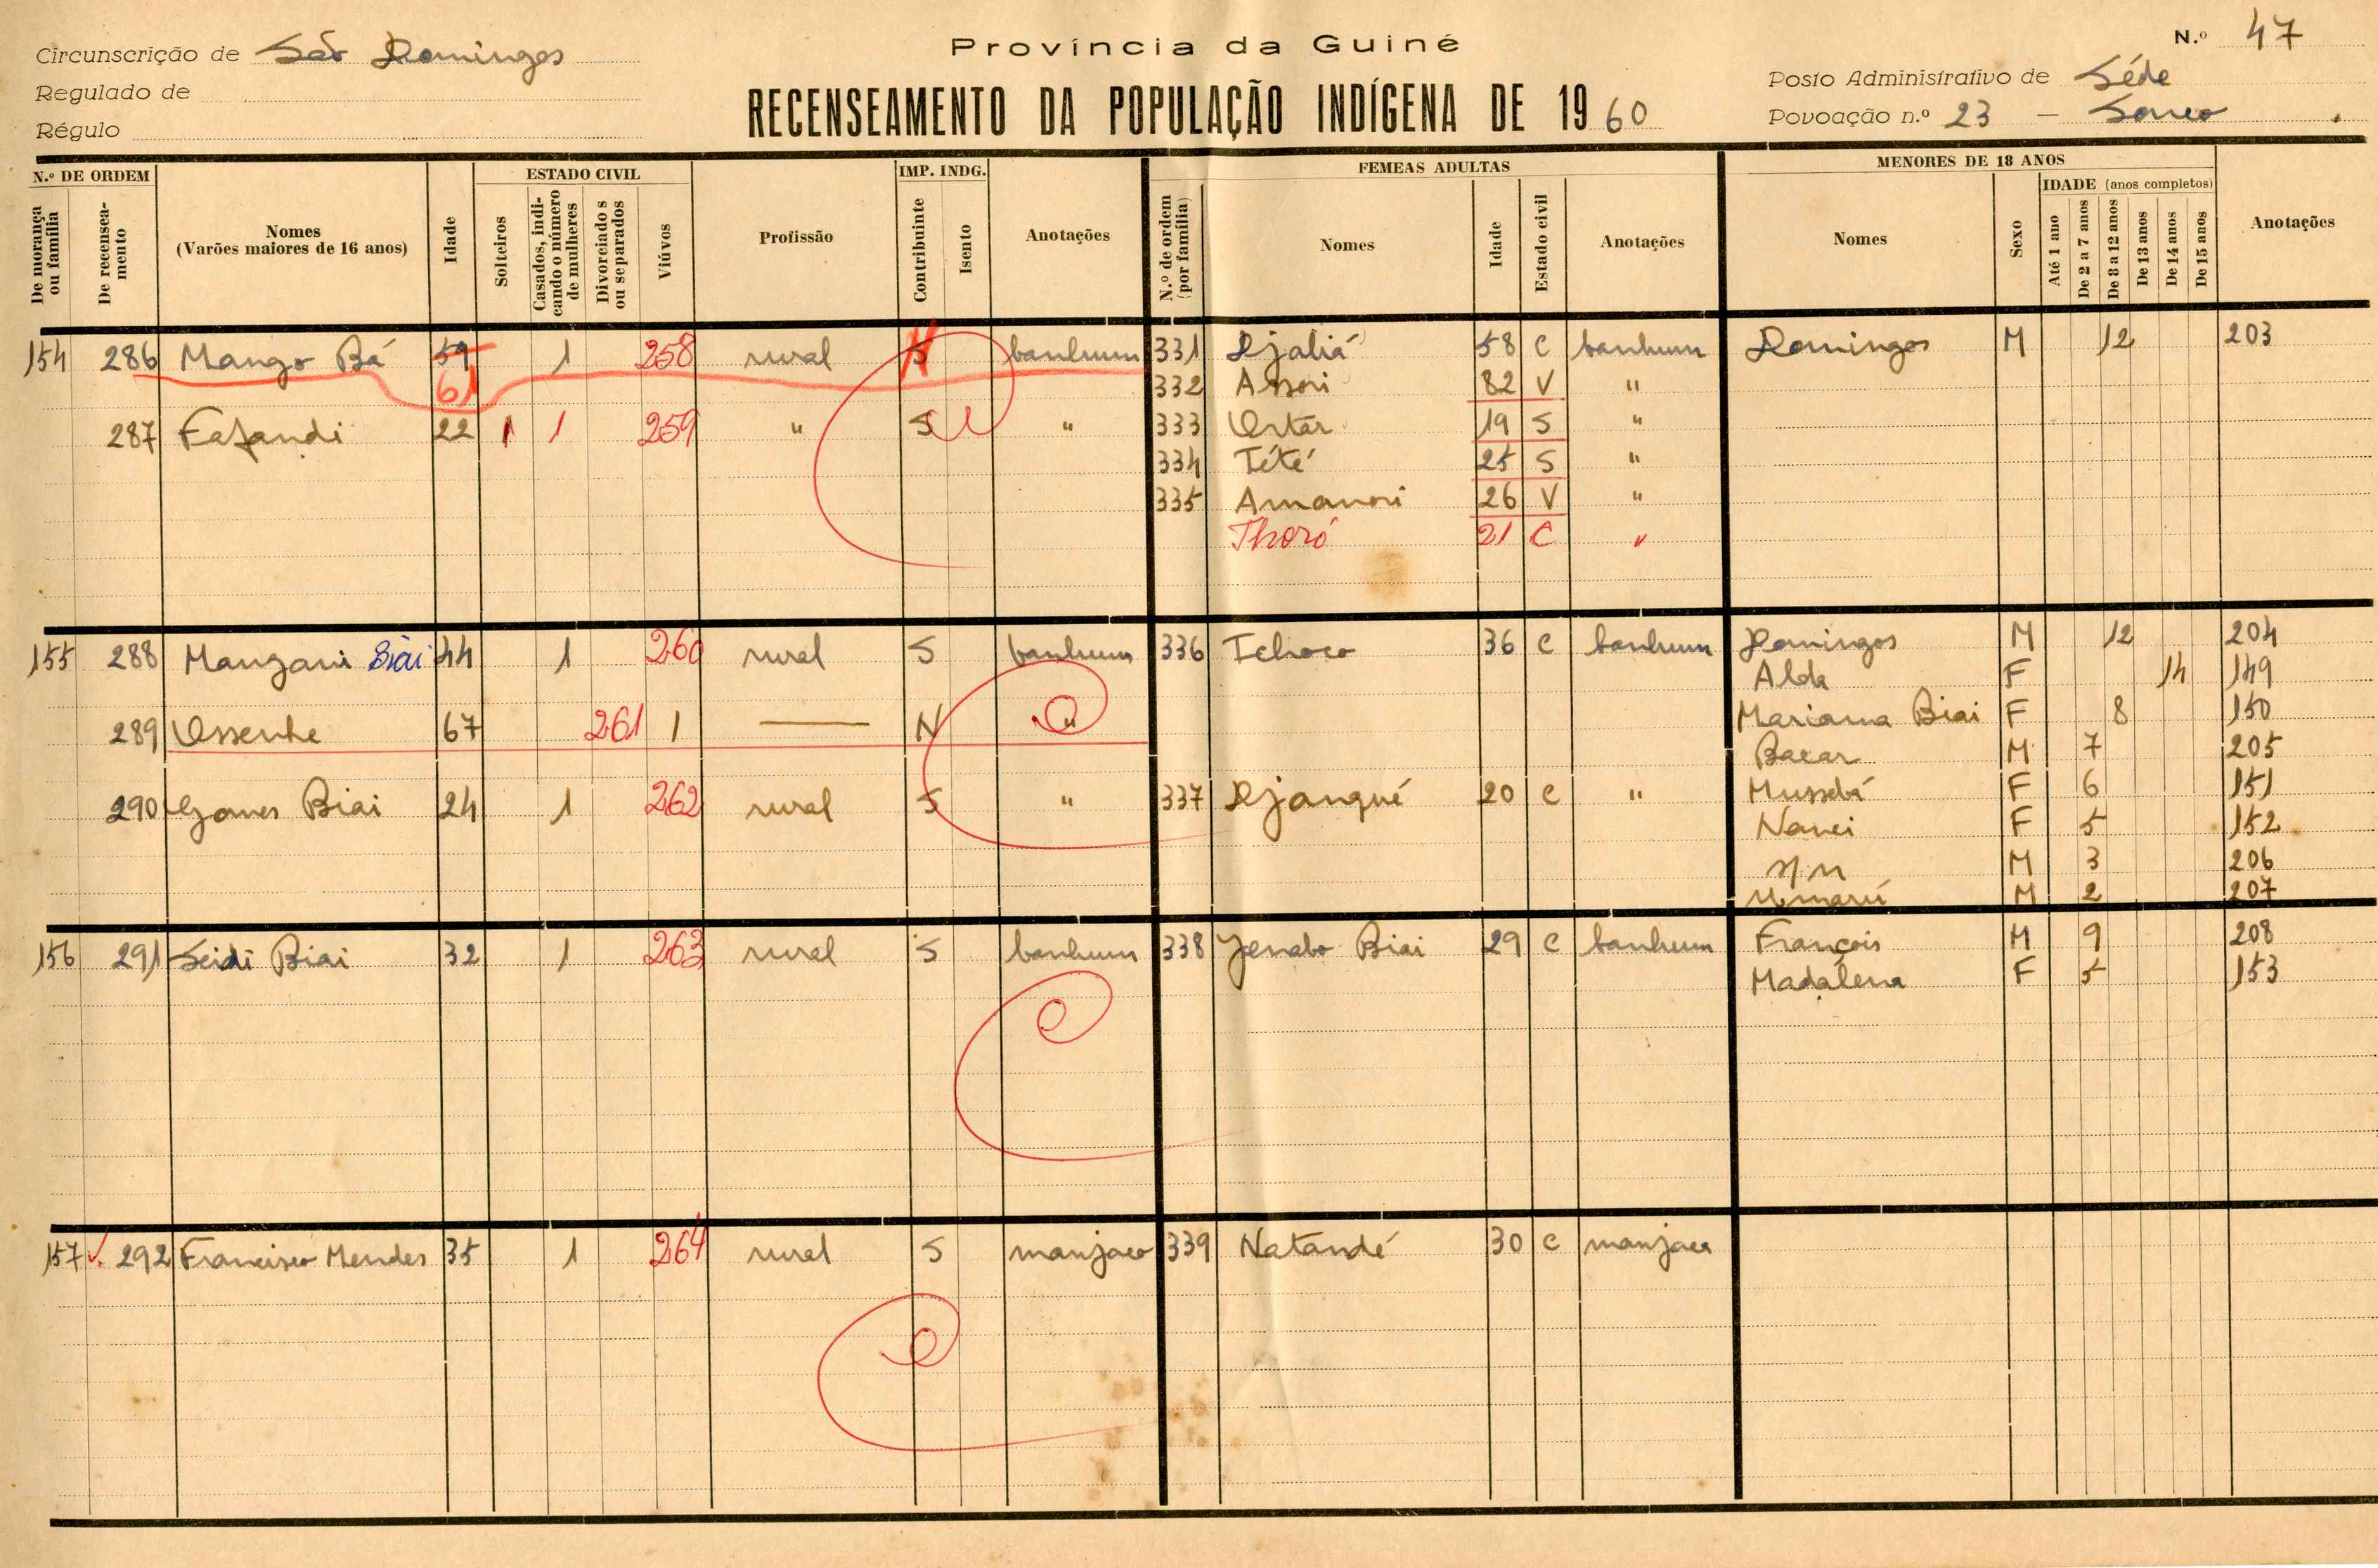 Província da Guiné
N.º 47
Circunscrição de São Domingos
Regulado de
Régulo
RECENSEAMENTO DA POPULAÇÃO INDÍGENA DE 1960
Posto Administrativo de Séde
Povoação n.º 23 -
N.º DE ORDEM
De morança ou família
De recenseamento
Nomes
(Varões maiores de 16 anos)
Idade
ESTADO CIVIL
Solteiros
Casados, indicando o número de mulheres
Divorciados ou separados
Viúvos
Profissão
IMP. INDG.
Contribuinte
Isento
Anotações
FEMEAS ADULTAS
N.º de ordem (por família)
Nomes
Idade
Estado civil
Anotações
MENORES DE 18 ANOS
Nomes
Sexo
IDADE (anos completos)
Até 1 ano
De 2 a 7 anos
De 8 a 12 anos
De 13 anos
De 14 anos
De 15 anos
Anotações
154 286 Mango Bá 59 1 258 rural S banhum 331 Djaliá 58 C banhum Domingos M 12 203
61 332 Assori 82 V "
287 Fafandi 22 1 1 259 " S " 333 19 S "
334 Tété 25 S "
335 Amanori 26 V "
Thoró 21 C "
155 288 Mangani Biai 44 1 260 rural S banhum 336 Tchoco 36 C banhum Domingos M 12 204
Alda F 14 149
289 Ussenhe 67 261 1 — N " Mariama Biai F 8 150
Bacar M 7 205
290 Gomes Biai 24 1 262 rural S " 337 Djanqué 20 C " Mussebá F 6 151
Nanei F 5 152
s/n M 3 206
Umarú M 2 207
156 291 Seidi Biai 32 1 263 rural S banhum 338 Jenabo Biai 29 C banhum François M 9 208
Madalena F 5 153
157 292 Francisco Mendes 35 1 264 rural S manjaco 339 Natandé 30 C manjaca